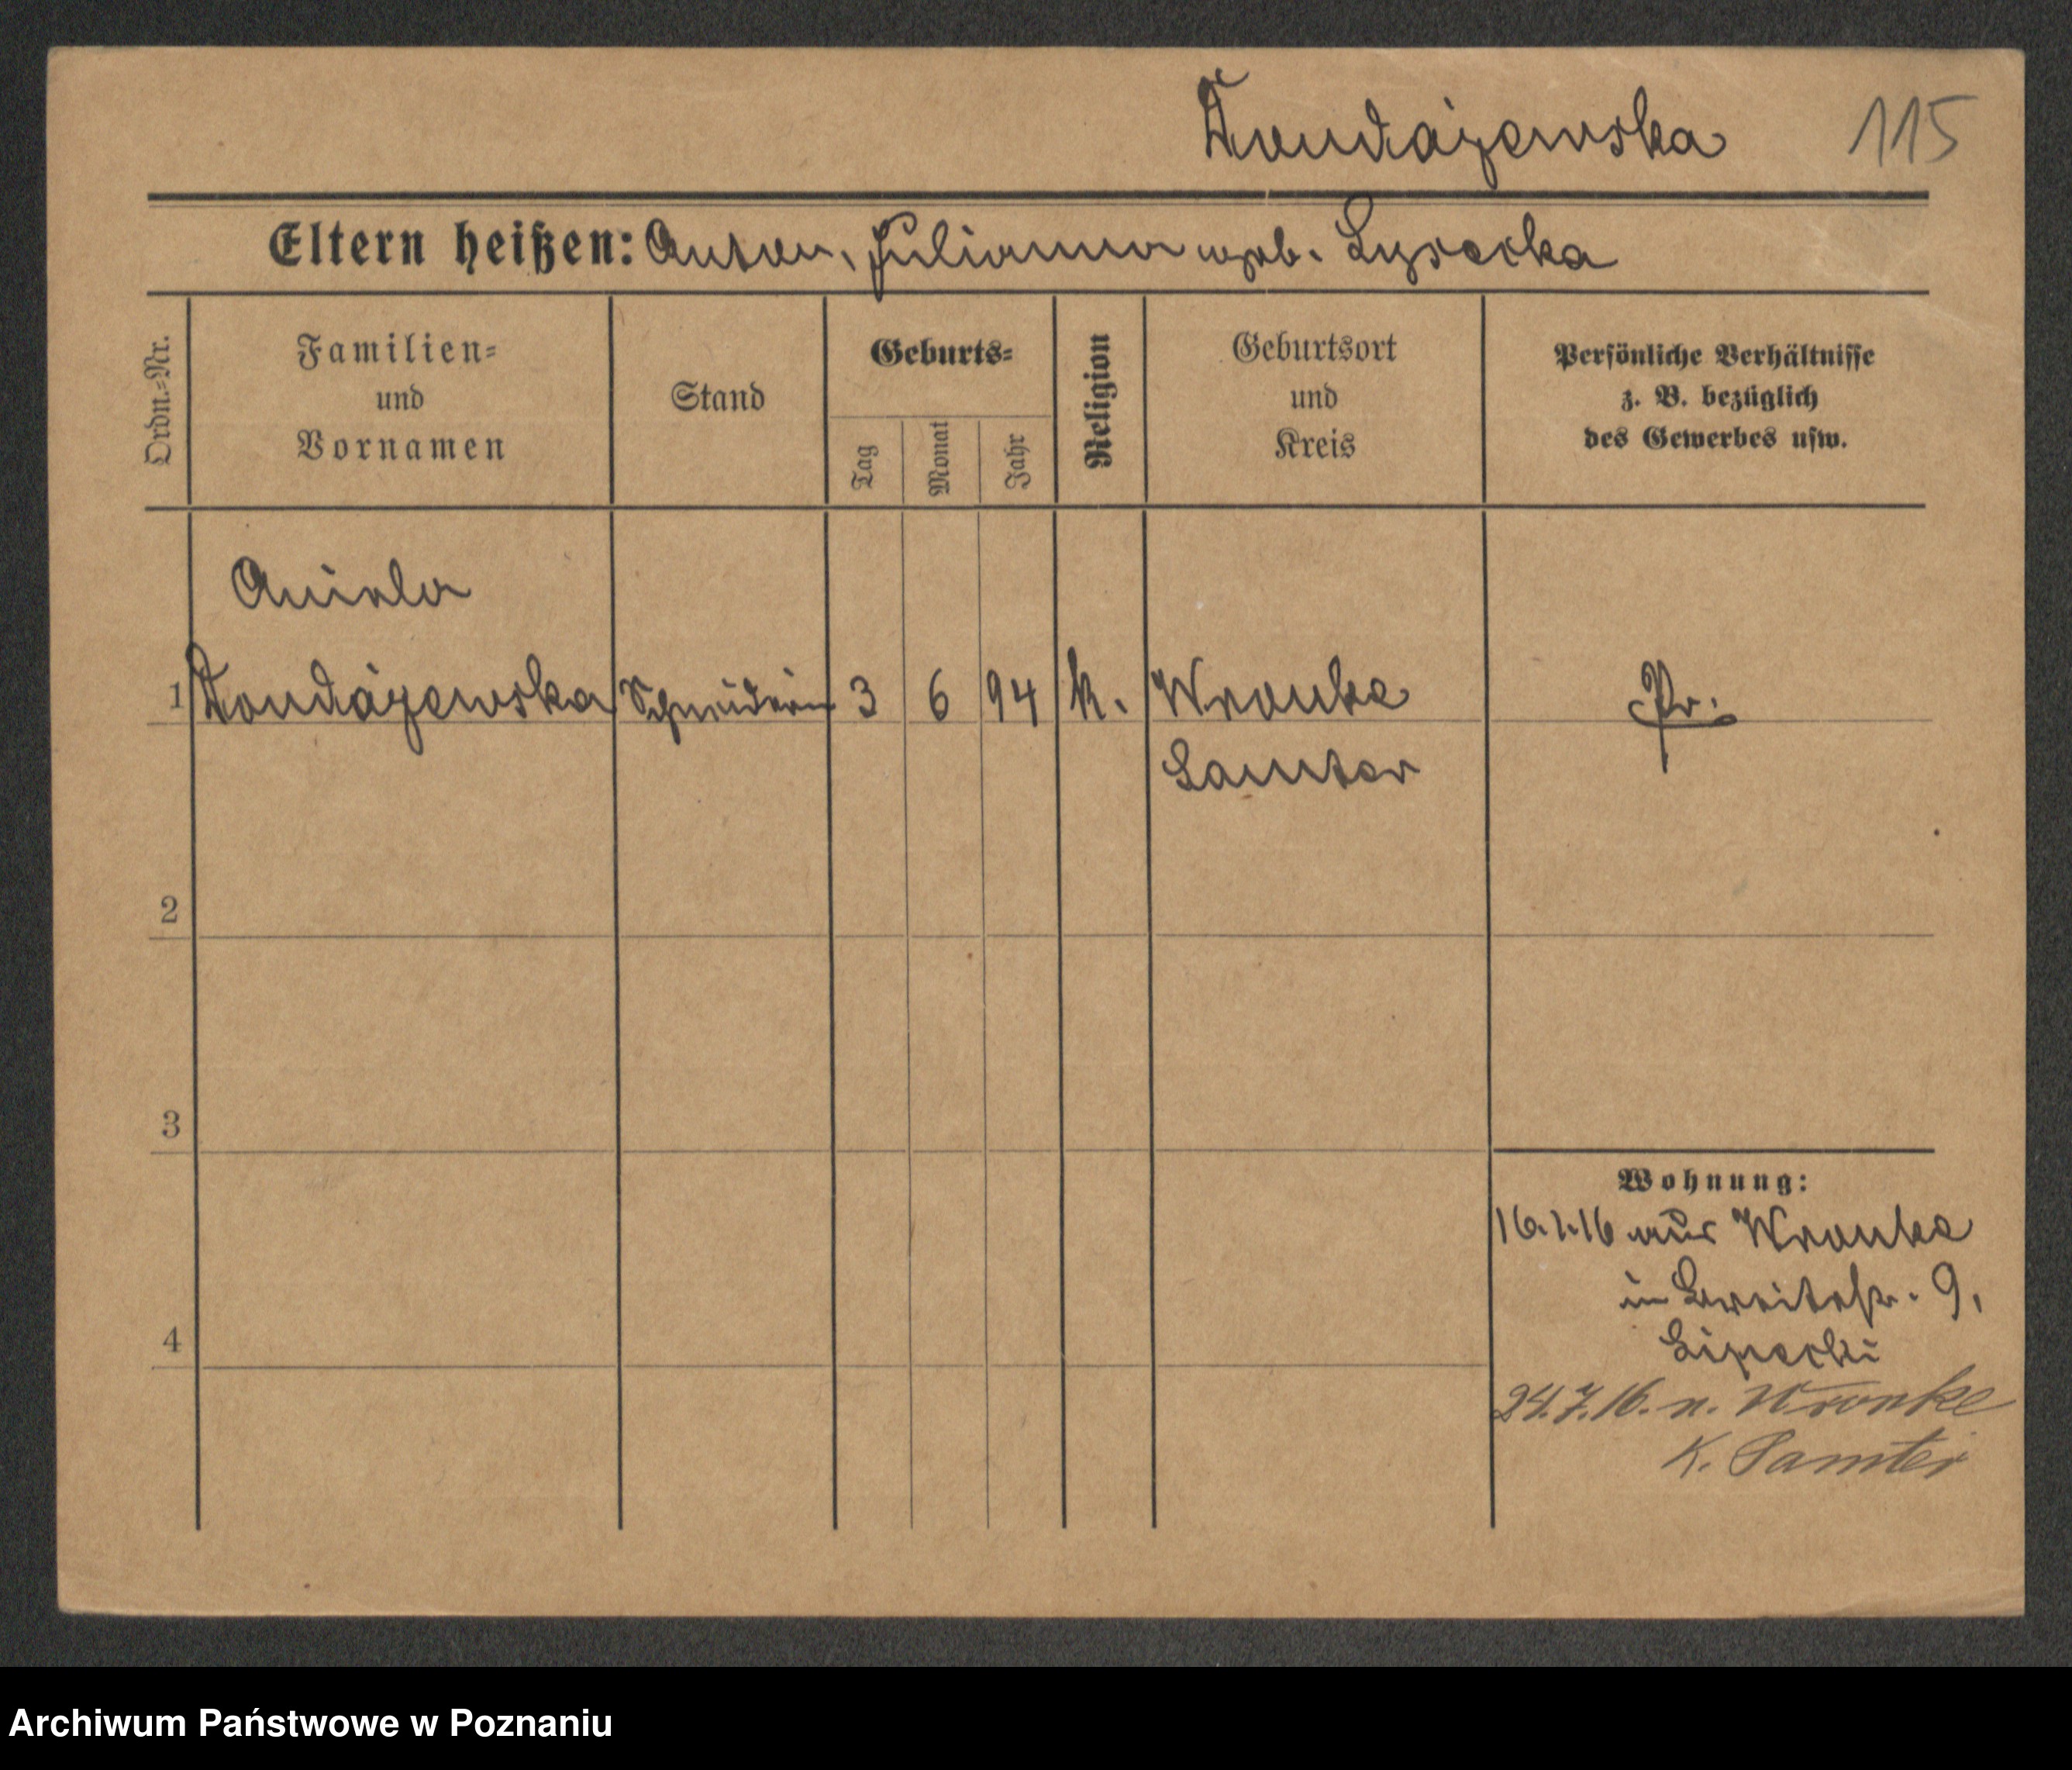 Dondajewska 115
Eltern heißen: Anton, Julianna geb. Lysecka
Ordn.-Nr.
Familien-
und
Vornamen
Stand
Geburts-
Tag
Monat
Jahr
Religion
Geburtsort
und
Kreis
Persönliche Verhältnisse
z. B. bezüglich
des Gewerbes usw.
Aniela
1 Dondajewska Schneiderin 3 6 94 k. Wronke Pr.
Samter
2
3
4
Wohnung:
16.1.16 aus Wronke
in Breitestr. 9,
Lipecki
24.7.16. n. Wronke
K. Samter
Archiwum Państwowe w Poznaniu